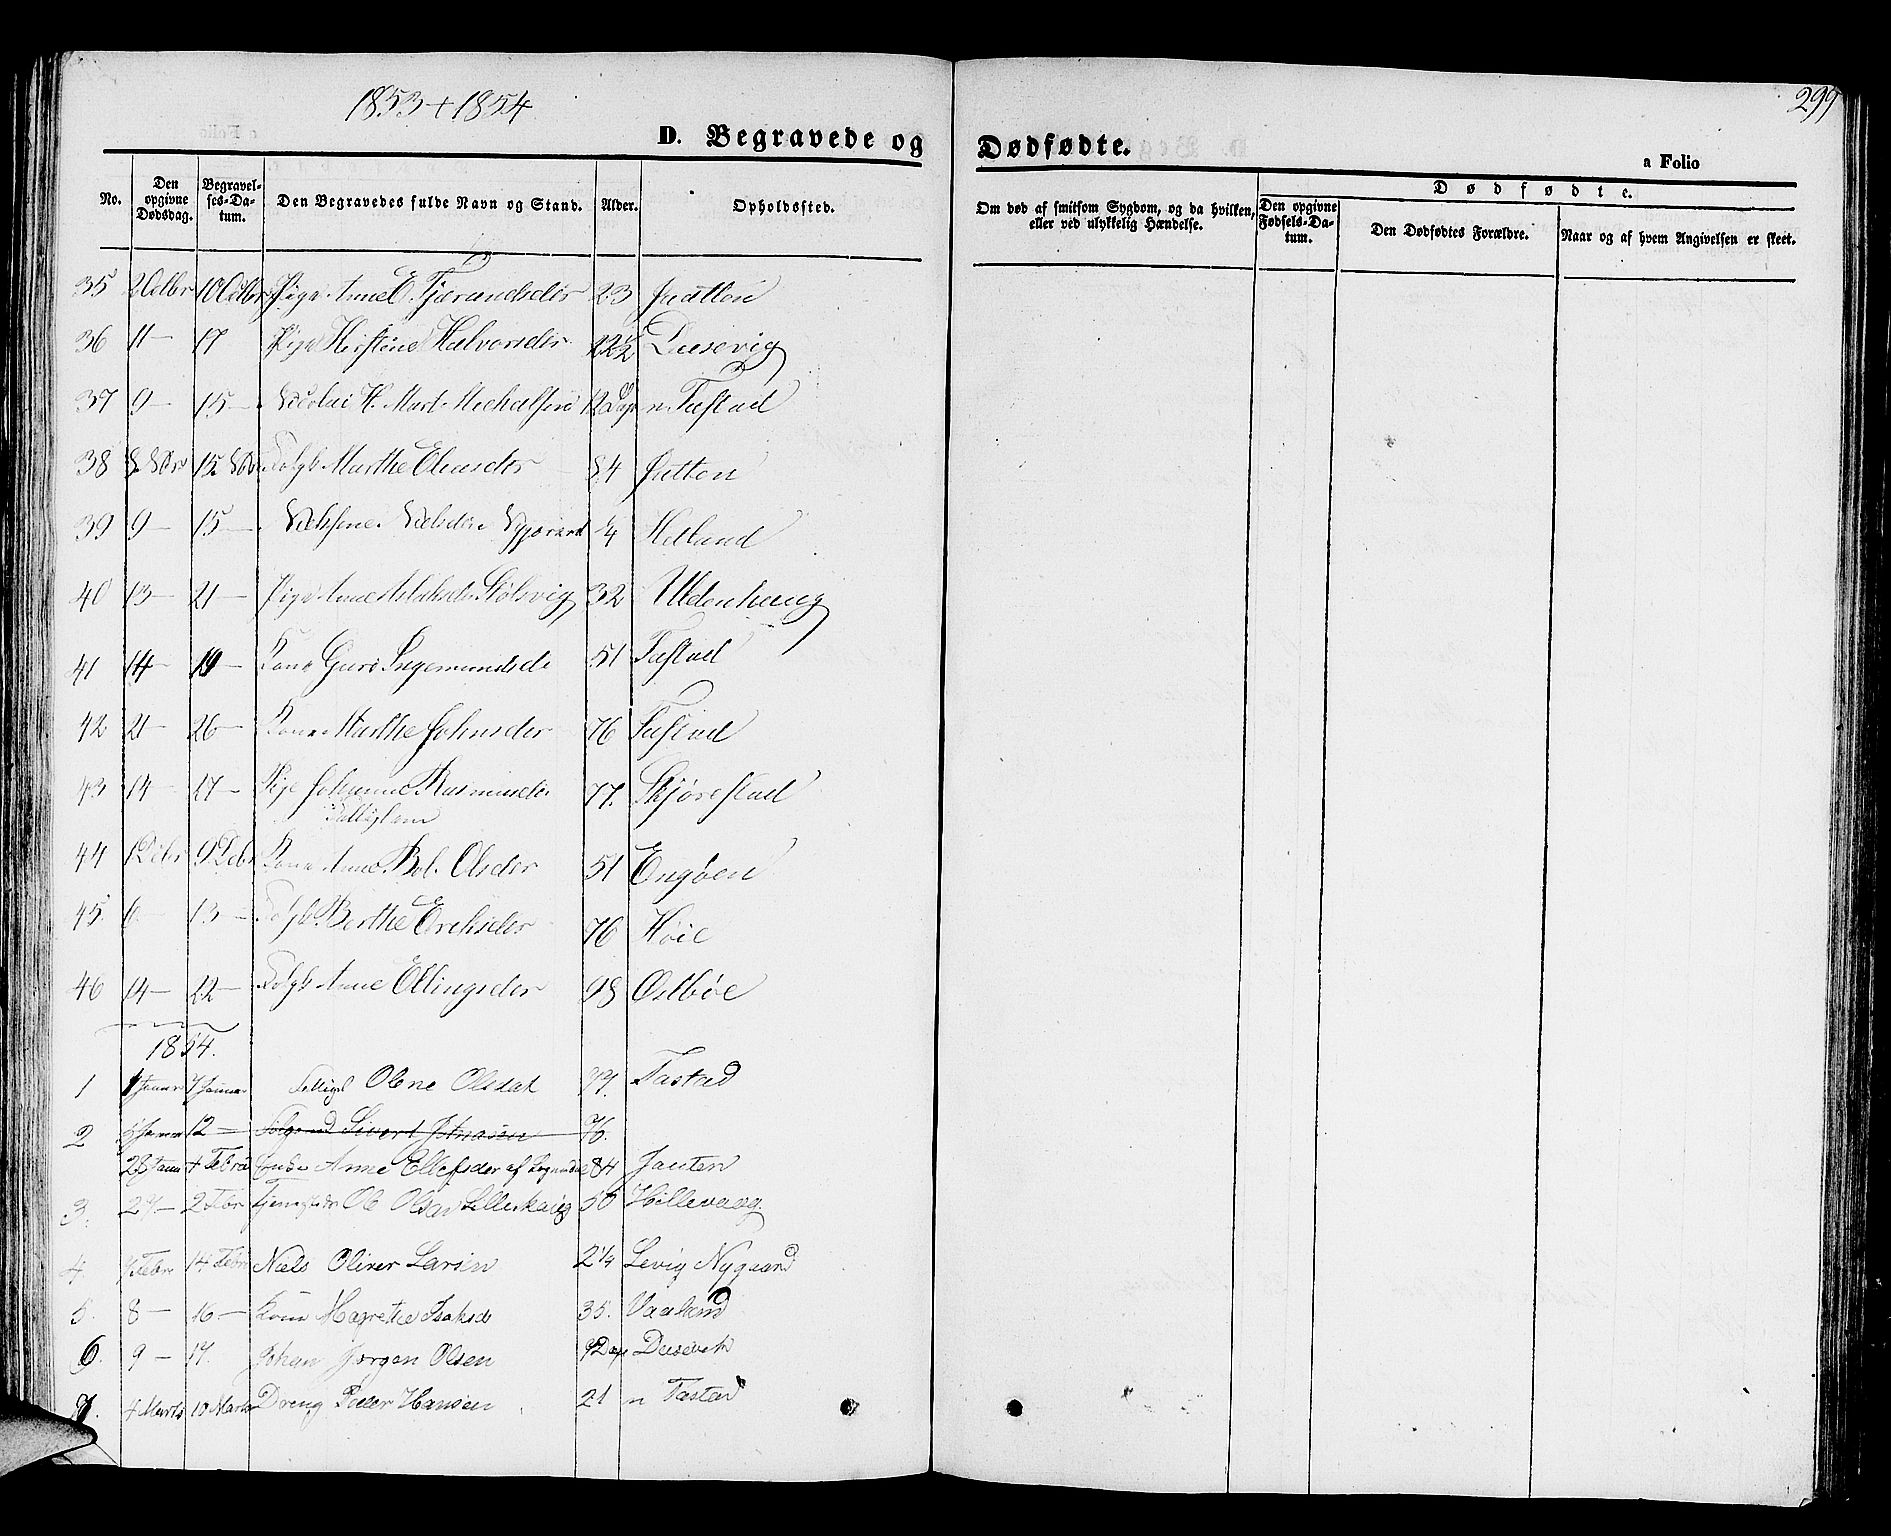 299
1853 + 1854
D. Begravede og Dødfødte.
a Folio
No. Den opgivne Dødsdag. Begravelses-Datum. Den Begravedes fulde Navn og Stand. Alder. Opholdssted. Om død af smitsom Sygdom, og da hvilken, eller ved ulykkelig Hændelse. Dødfødte. Den opgivne Fødsels-Datum. Den Dødfødtes Forældre. Naar og af hvem Angivelsen er skeet.
35 2 Octbr 10 Octbr Pige Anne E. Tjørandsdtr 23 Jaatten
36 11 — 17 Pige Kirstine Halvorsdtr 22½ Dusevig
37 9 — 15 — Nicolai H. Mart. Michalsen 12 Dage n. Tastad
38 8 Nov 15 Nov Folgk Marthe Eliasdtr 84 Jatten
39 9 — 15 — Nielsine Nielsdtr Nygaard ¼ Helland
40 13 — 21 — Pige Anne Aslaksdtr Stølsvig 32 Uldenhaug
41 14 — 19 — Kone Guro Sigemundsdt 51 Tastad
42 21 — 26 — Kone Marthe Johnsdtr 76 Tastad
43 14 — 27 — Pige Johanne Rasmusdtr 77. Skjørestad
Fattiglem
44 1 Debr 9 Debr Kone Anne Bol. Olsdtr 51 Engøen
45 6 13 — Folgk. Berthe Erichsdtr 76 Høie
46 14 — 22 — Folgk Anne Ellingsdtr 98 Østbøe
1854.
1 1 Januar 7 Januar Olene Olsdat 77. Tastad
2 5 Januar 12 — Folgemd Sivert Jonasen 76.
28 Janu 4 Febru Enke Anne Ellefsdtr af Sogndal 84 Jaaten
3. 27 — 2 Febr Ole Olsen 50 Hillevaag.
4. 7 Febr 14 Febr Niels Oliver Larsen 2¼ Levig Nygaard
5. 8 — 16 — Kone Magrethe Isaksd 35. Vaaland
6. 9 — 17. Johan Jørgen Olsen 9 Dage Dusevik
7. 4 Marts 10 Marts Dreng Peder Hansen 21 n Tastad